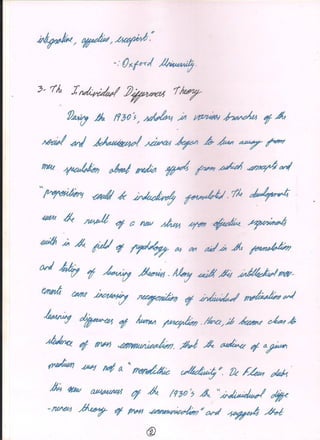 integrative, affective, escapist."
-: Oxford University.
3- The Individual Differences Theory
During the 1930's, scholars in various branches of the
social and behavioural sciences began to turn away from
mere speculation about media effects from which concepts and
"propositions could be inductively formulated. The developments
were the result of a new stress upon effective experiments
with in the field of psychology as an aid in the formulation
and testing of learning theories. Along with this intellectual mov-
ements came increasing recognition of individual motivation and
learning differences of human perception. Hence, it became clear to
students of mass communication, that the audience of a given
medium was not a "monolithic collectivity". De Fleur
this new awareness of the 1930's the "individual diffe
-rences theory of mass communication" and suggests that
②